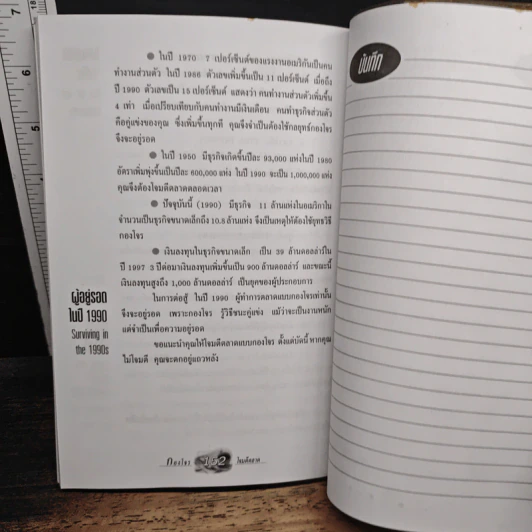 ● ในปี 1970 7 เปอร์เซ็นต์ของแรงงานอเมริกันเป็นคน
ทำงานส่วนตัว ในปี 1988 ตัวเลขเพิ่มขึ้นเป็น 11 เปอร์เซ็นต์ เมื่อถึง
ปี 1990 ตัวเลขเป็น 15 เปอร์เซ็นต์ แสดงว่า คนทำงานส่วนตัวเพิ่มขึ้น
4 เท่า เมื่อเปรียบเทียบกับคนทำงานมีเงินเดือน คนทำธุรกิจส่วนตัว
คือคู่แข่งของคุณ ซึ่งเพิ่มขึ้นทุกที คุณจึงจำเป็นต้องใช้กลยุทธ์กองโจร
จึงจะอยู่รอด
● ในปี 1950 มีธุรกิจเกิดขึ้นปีละ 93,000 แห่งในปี 1980
อัตราเพิ่มพุ่งขึ้นเป็นปีละ 600,000 แห่ง ในปี 1990 จะเป็น 1,000,000 แห่ง
คุณจึงต้องโจมตีตลาดตลอดเวลา
● ปัจจุบันนี้ (1990) มีธุรกิจ 11 ล้านแห่งในอเมริกาใน
จำนวนเป็นธุรกิจขนาดเล็กถึง 10.8 ล้านแห่ง จึงเป็นเหตุให้ต้องใช้ยุทธวิธี
กองโจร
● เงินลงทุนในธุรกิจขนาดเล็ก เป็น 39 ล้านดอลล่าร์ใน
ปี 1997 3 ปีต่อมาเงินลงทุนเพิ่มขึ้นเป็น 900 ล้านดอลล่าร์ และขณะนี้
เงินลงทุนสูงถึง 1,000 ล้านดอลล่าร์ เป็นยุคของผู้ประกอบการ
ในการต่อสู้ ในปี 1990 ผู้ทำการตลาดแบบกองโจรเท่านั้น
จึงจะอยู่รอด เพราะกองโจร รู้วิธีชนะคู่แข่ง แม้ว่าจะเป็นงานหนัก
แต่จำเป็นเพื่อความอยู่รอด
ขอแนะนำคุณให้โจมตีตลาดแบบกองโจร ตั้งแต่บัดนี้ หากคุณ
ไม่โจมตี คุณจะตกอยู่แถวหลัง
ผู้อยู่รอด
ในปี 1990
Surviving in
the 1990s
กองโจร 152 โจมตีตลาด
บันทึก